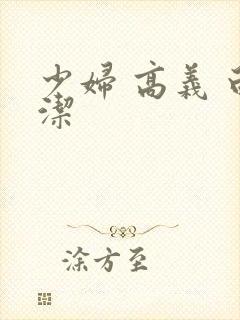 少婦 高義 
潔
涂方至